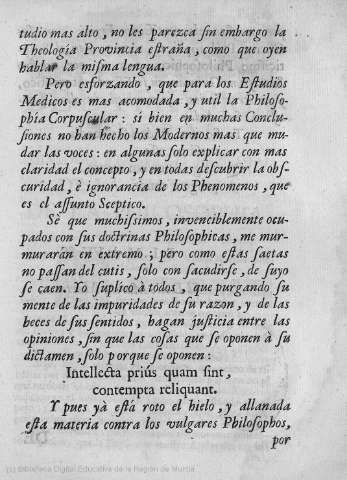 tudio mas alto, no les parezca sin embargo la
Theología Provincia estraña, como que oyen
hablar la misma lengua.
Pero esforzando, que para los Estudios
Medicos es mas acomodada, y util la Philoso-
phía Corpuscular: si bien en muchas Conclu-
siones no han hecho los Modernos mas que mu-
dar las voces: en algunas solo explicar con mas
claridad el concepto, y en todas descubrir la obs-
curidad, è ignorancia de los Phenomenos, que
es el assunto Sceptico.
Sè que muchissimos, invenciblemente ocu-
pados con sus doctrinas Philosophicas, me mur-
murarán en extremo; pero como estas saetas
no passan del cutis, solo con sacudirse, de suyo
se caen. Yo suplico à todos, que purgando su
mente de las impuridades de su razon, y de las
heces de sus sentidos, hagan justicia entre las
opiniones, sin que las cosas que se oponen à su
dictamen, solo porque se oponen:
Intellecta priùs quam sint,
contempta reliquant.
Y pues yà está roto el hielo, y allanada
esta materia contra los vulgares Philosophos,
por
(c) Biblioteca Digital Educativa de la Región de Murcia